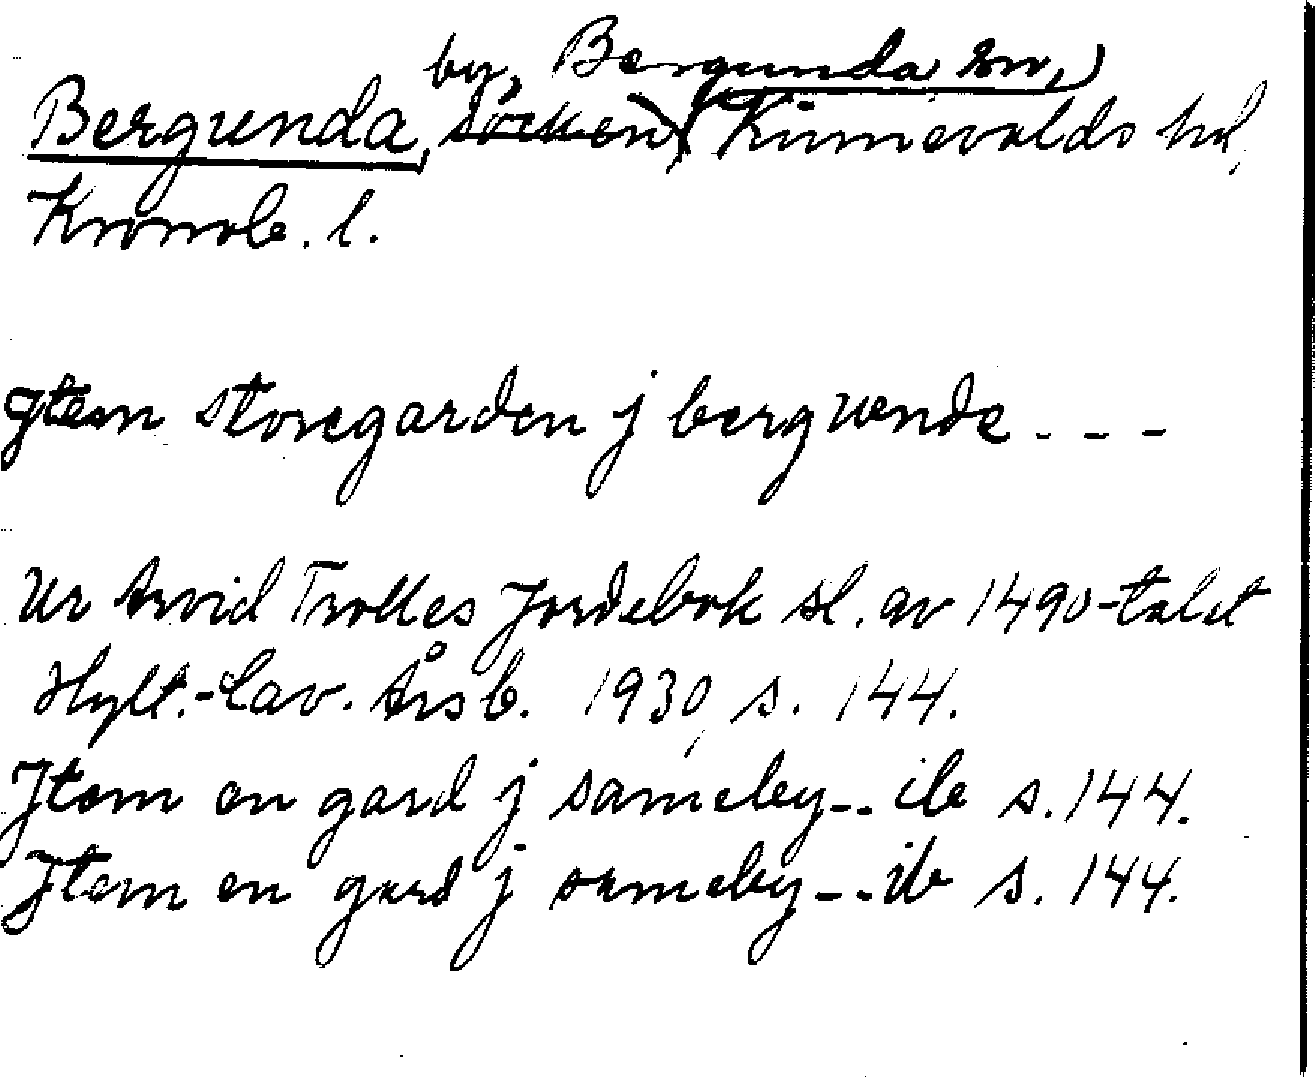 by, Bergunda sn,
Bergunda, socken, Kinnevalds hd,
Kronob. l.
Jtem storegarden j bergwende - - -
Ur Arvid Trolles Jordebok sl. av 1490-talet
Hylt.-Cav. Årsb. 1930, s. 144.
Jtem en gard j sameby - - ib s. 144.
Jtem en gard j sameby - - ib s. 144.